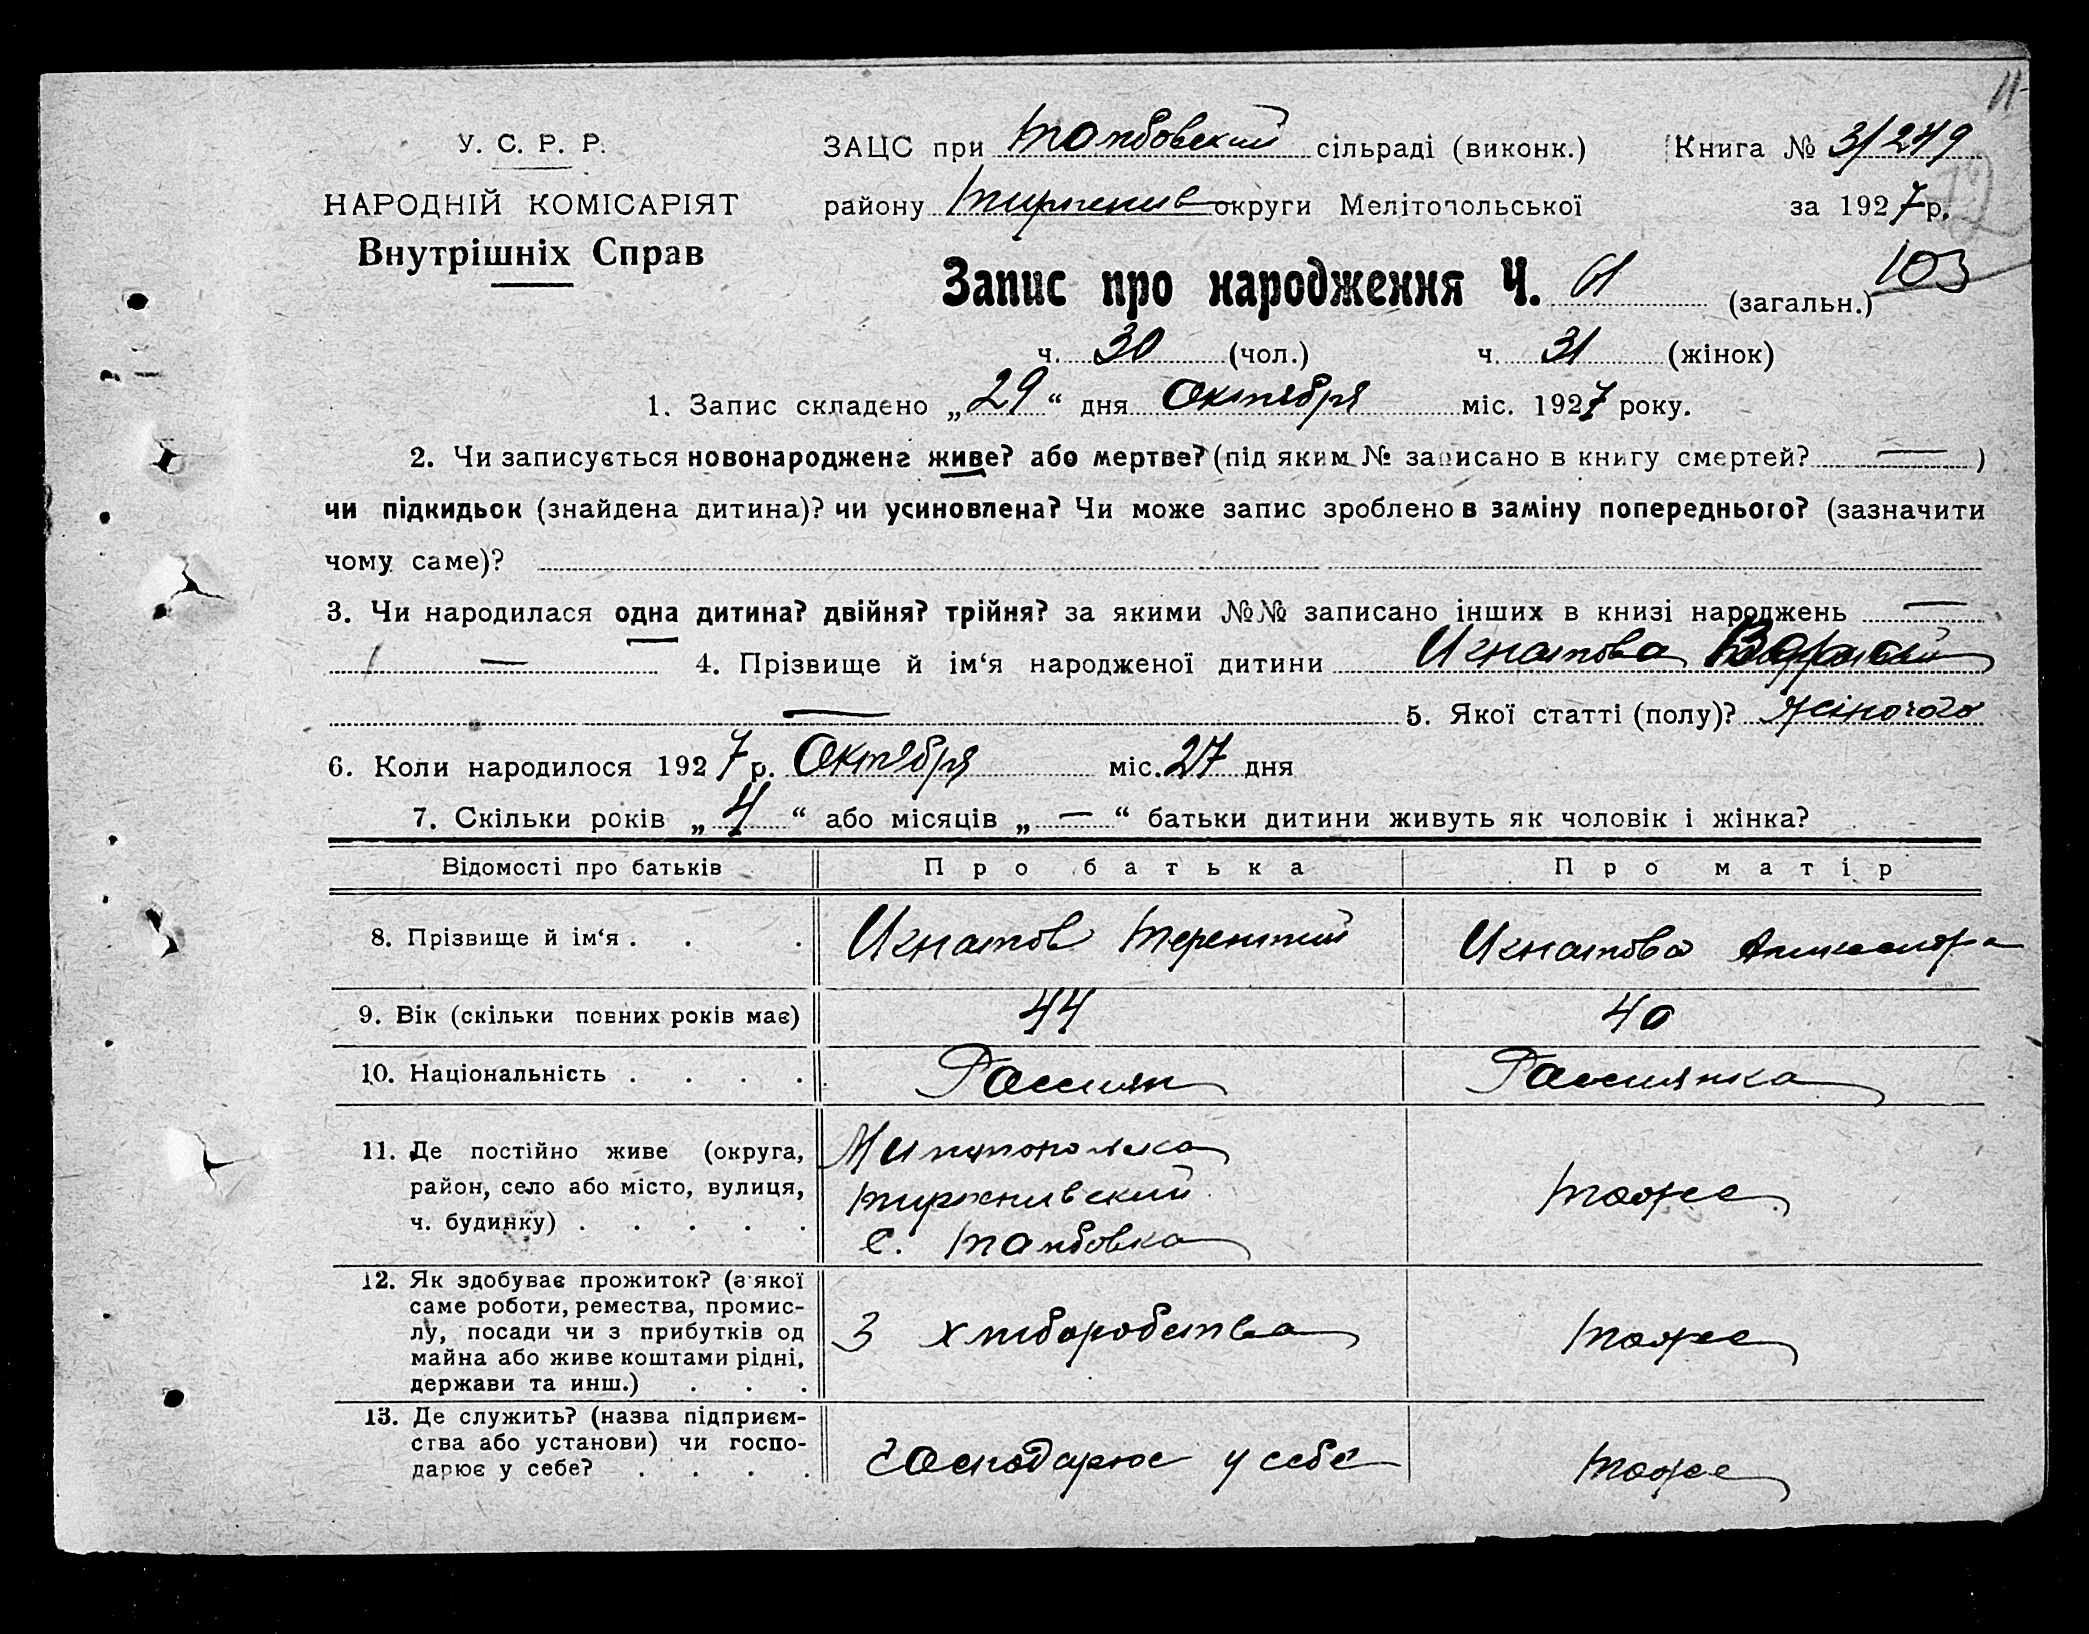 11
У. С. Р. Р. ЗАЦС при Тамбовский сільраді (виконк.) Книга № 3/249
НАРОДНІЙ КОМІСАРІЯТ району округи Мелітопольської за 1927 р.
Внутрішніх Справ
Запис про народження Ч. 61 (загальн.) 103
ч. 30 (чол.) ч. 31 (жінок)
1. Запис складено „29“ дня Октября міс. 1927 року.
2. Чи записується новонароджене живе? або мертве? (під яким № записано в книгу смертей? — )
чи підкидьок (знайдена дитина)? чи усиновлена? Чи може запис зроблено в заміну попереднього? (зазначити
чому саме)?
3. Чи народилася одна дитина? двійня? трійня? за якими №№ записано інших в книзі народжень —
— 4. Прізвище й ім‘я народженої дитини Игнатова
— 5. Якої статті (полу)? жіночого
6. Коли народилося 1927 р. Октября міс. 27 дня
7. Скільки років „4“ або місяців „—“ батьки дитини живуть як чоловік і жінка?
Відомості про батьків Про батька Про матір
8. Прізвище й ім‘я . . . Игнатов Терентий Игнатова Александра
9. Вік (скільки повних років має) 44 40
10. Національність . . . . Россиян Россиянка
11. Де постійно живе (округа,
район, село або місто, вулиця,
ч. будинку) . . . . .
Милитопольска
с. Тамбовка
тоже
12. Як здобуває прожиток? (з якої
саме роботи, ремества, промис-
лу, посади чи з прибутків од
майна або живе коштами рідні,
держави та инш.) . . .
З хлиборобства
тоже
13. Де служить? (назва підприєм-
ства або установи) чи госпо-
дарює у себе? . . . .
господарює у себе
тоже